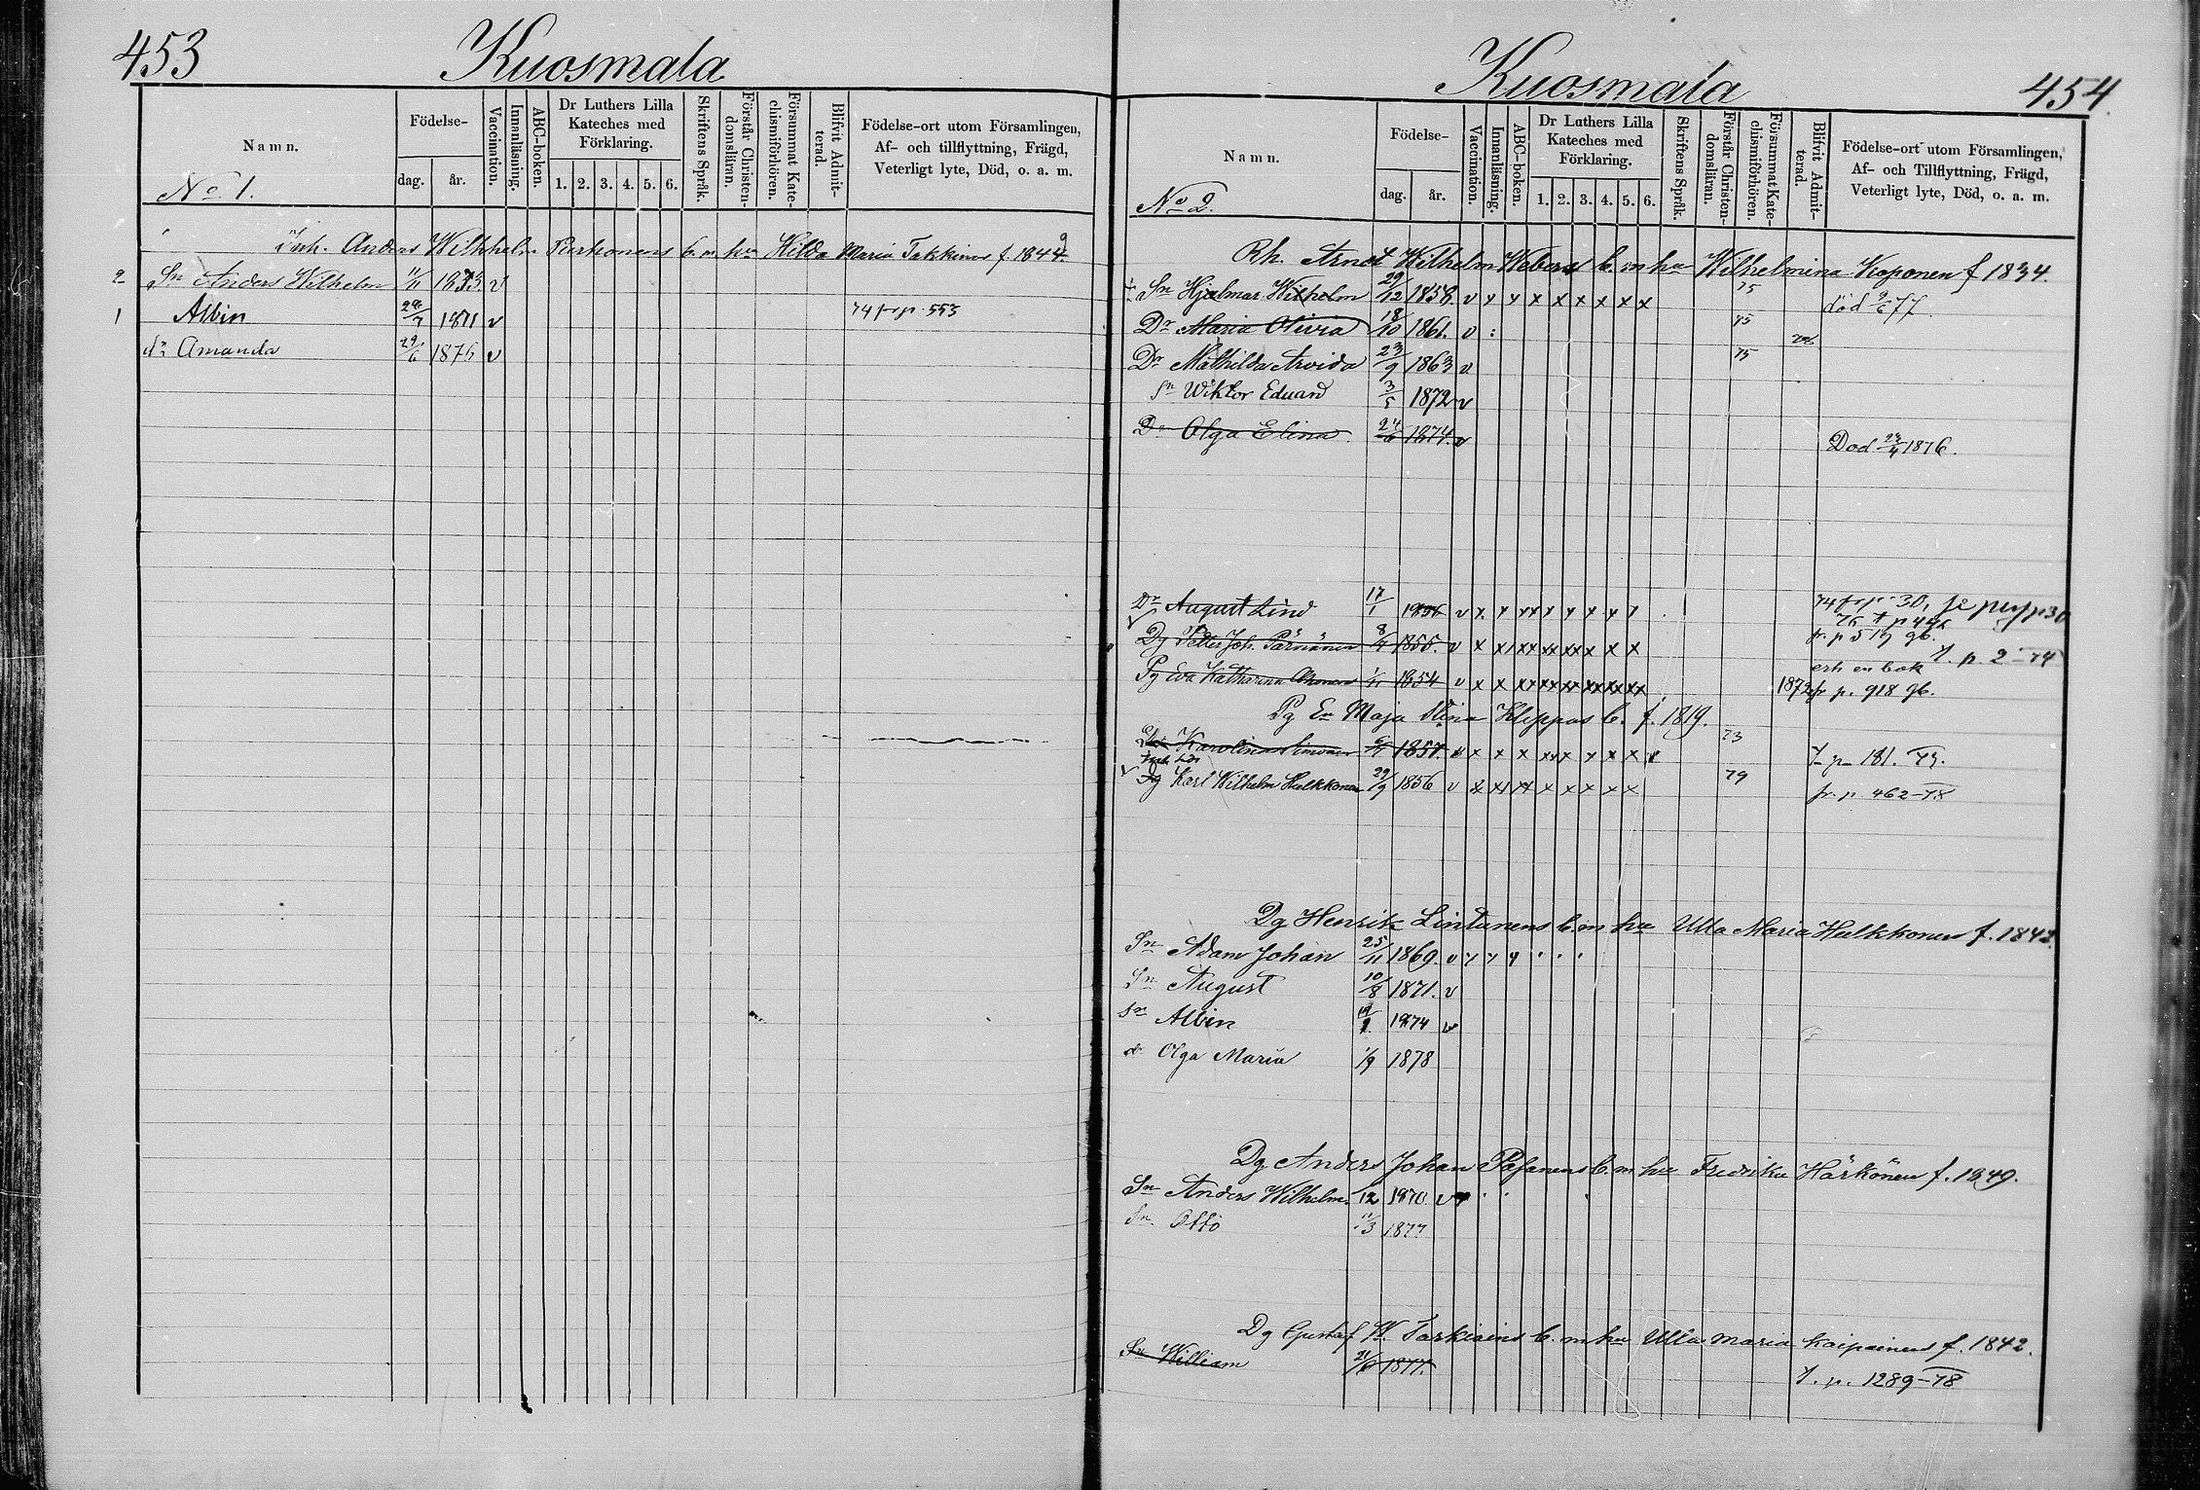 453
Kuosmala
Namn.
Födelse-
dag.
år.
Vaccination.
Innanläsning.
ABC-boken.
Dr Luthers Lilla
Kateches med
Förklaring.
1. 2. 3. 4. 5. 6.
Skriftens Språk.
Förstår Christen-
domsläran.
Försummat Kate-
chismiförhören.
Blifvit Admit-
terad.
Födelse-ort utom Församlingen,
Af- och tillflyttning, Frägd,
Veterligt lyte, Död, o. a. m.
No 1.
Anders Wilhhelm b. m. hu Hilda Maria Takkinen f. 1844.
2 Sn Anders Wilhelm 11/11 1873. v
1 Albin 1871 v 74 fr p. 553
dr Amanda 29/6 1876 v
Kuosmala
454
Namn.
Födelse-
dag.
år.
Vaccination.
Innanläsning.
ABC-boken.
Dr Luthers Lilla
Kateches med
Förklaring.
1. 2. 3. 4. 5. 6.
Skriftens Språk.
Förstår Christen-
domsläran.
Försummat Kate-
chismiförhören.
Blifvit Admit-
terad.
Födelse-ort utom Församlingen,
Af- och Tillflyttning, Frägd,
Veterligt lyte, Död, o. a. m.
No 2.
Rh. Wilhelm Webers b. m hu Wilhelmina Koponen f 1834.
Sn Hjalmar Wilhelm 29/12 1858. v x x x x x x x x 75 död 9/6 77.
Dr Maria Olivia 18/10 1861. v 75
Dr Mathilda Arvida 23/9 1863 v 75
Sn Wiktor Eduard 3/5 1872 v
Dr Olga Elina 1874. v Död 1876.
August Lind 17/1 v x x xx x x x x x 74 fr p. 30,
Dg Petter Joh. Pärnänen 1855. v x x xx xx xx x x x
erh en bok 7. p. 2-74
Pg Eva Katharina 1/11 1854 v x x xx xx xx xx xx xx 1872 fr p. 918 gb.
Pg Maja Stina Kleppas b. f. 1819.
Karolina Simonen 1857. v x x x xx x x x x 73 p 181. 73.
Dg Karl Wilhelm Hulkkonen 29/9 1856 v x x x x x x x x 79 fr. p. 462-78
Dg Henrik Lintunens b. m hu Ulla Maria Hulkkonen f. 1842.
Sn Adam Johan 25/11 1869. v
Sn August 10/8 1871. v
Sn Albin 1874 v
dr Olga Maria 1/9 1878
Dg Anders Johan b. m hu Fredrika Härkönen f. 1849.
Sn Anders Wilhelm 12 1870. v
Sn Otto 11/3 1877
Dg Gustaf W. b. m hu Ulla Maria Kaipainen f. 1842.
Sn William 1877. 7. p. 1289-78